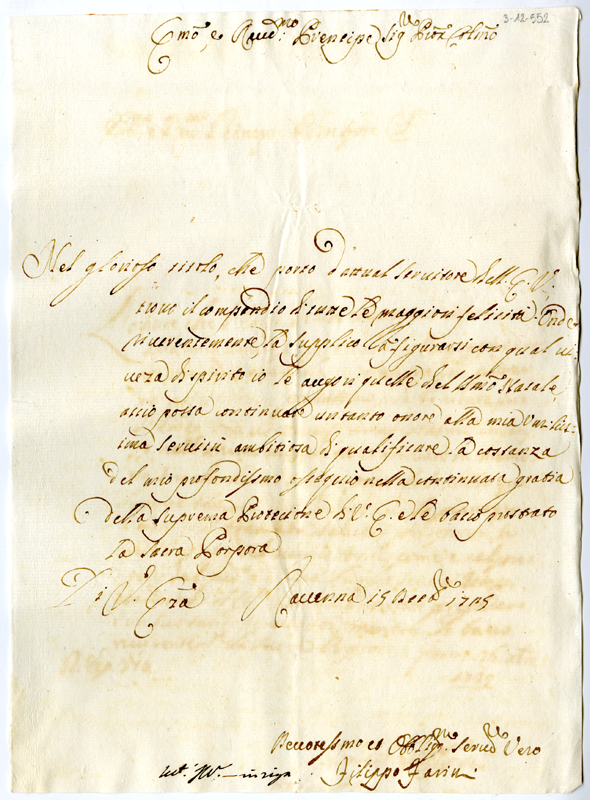 3-12-552
Emo, e Revd.mo Prencipe Sig.re Pne Colmo
Nel glorioso titolo, che porto d'attual servitore dell' E. V.
trovo il compendio di tutte le maggiori felicità. Onde
riverentemente la supplico à figurarsi con qual vi=
vezza di spirito io le auguri quelle del SSmo Natale,
acciò possa continuare un tanto onore alla mia Umilis=
sima servitù ambitiosa di qualificare la costanza
del mio profondissimo ossequio nella continuata gratia
della suprema Protezione di V. E. e le bacio prostrato
la sacra Porpora
Di V. Eza Ravenna 15 Decebre 1705
Devotissimo et Obblig.mo Servid.re Vero
Filippo